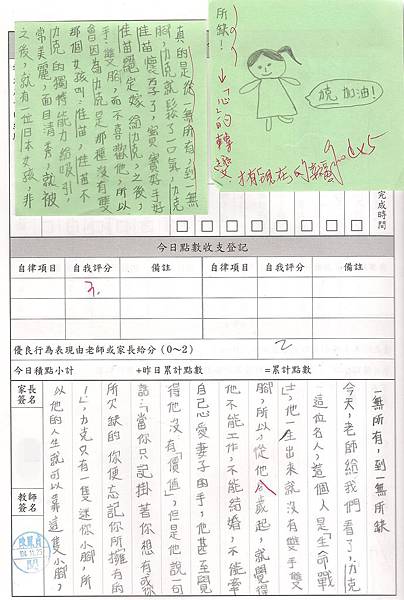 一無所有，到一無所缺
今天，老師給我們看了，力克
這位名人，這個人是「生命戰
士」，他一生出來就沒有雙手雙
腳，所以，從他八歲起，就覺得
他不能工作，不能結婚，不能牽
自己心愛妻子的手，他甚至覺
得他沒有價值」，但是他說一句
話：「當你只記掛著你想有或你
所欠缺的，你便忘記你所擁有的
！」，力克只有一隻迷你小腳，所
以他的人生就可以靠這隻小腳，
之後，就有一位日本女孩，非
常美麗，面目清秀，就被
力克的獨特能力給吸引，
那個女孩叫佳苗，佳苗不
會因為力克是那種沒有雙
手雙腳，而不喜歡他，所以
佳苗確定嫁給力克，之後，
佳苗懷孕了，寶寶好手好
腳，力克就鬆了一口氣，力克
真的是從一無所有，到一無
所缺！
「心」的轉變
力克 加油！
完成時間
今日點數收支登記
自律項目 自我評分 備註 自律項目 自我評分 備註
3.
優良行為表現由老師或家長給分（0~2） 2
今日積點小計 +昨日累計點數 =累計點數
家長簽名
教師簽名